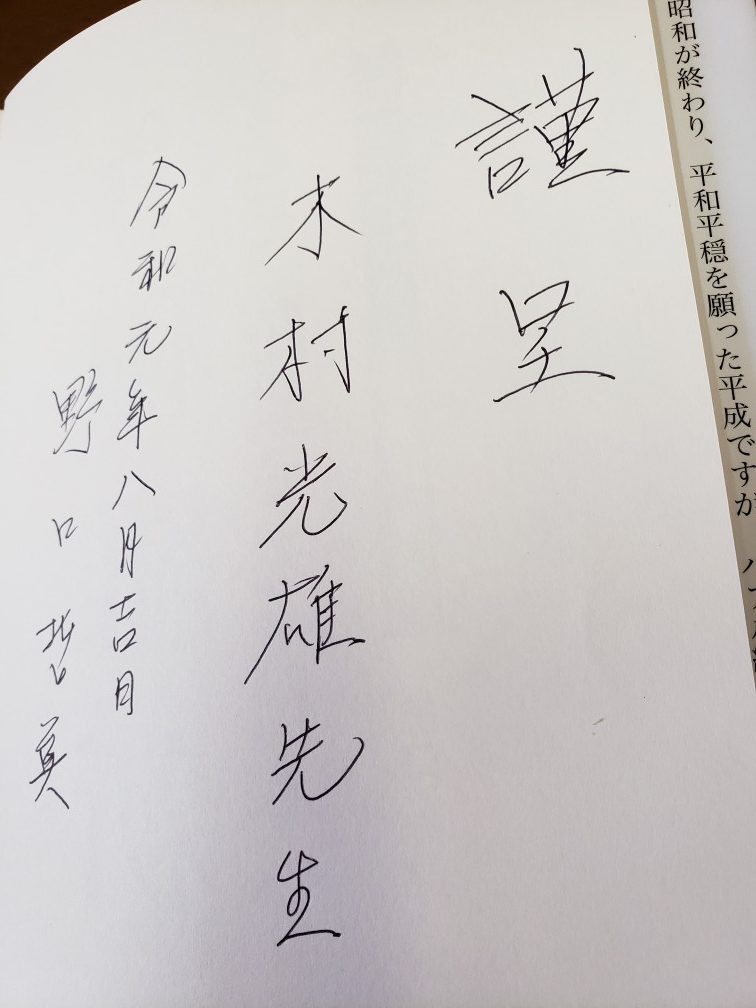 昭和が終わり、平和平穏を願った平成ですが
謹呈
木村光雄先生
令和元年八月吉日
野口哲真